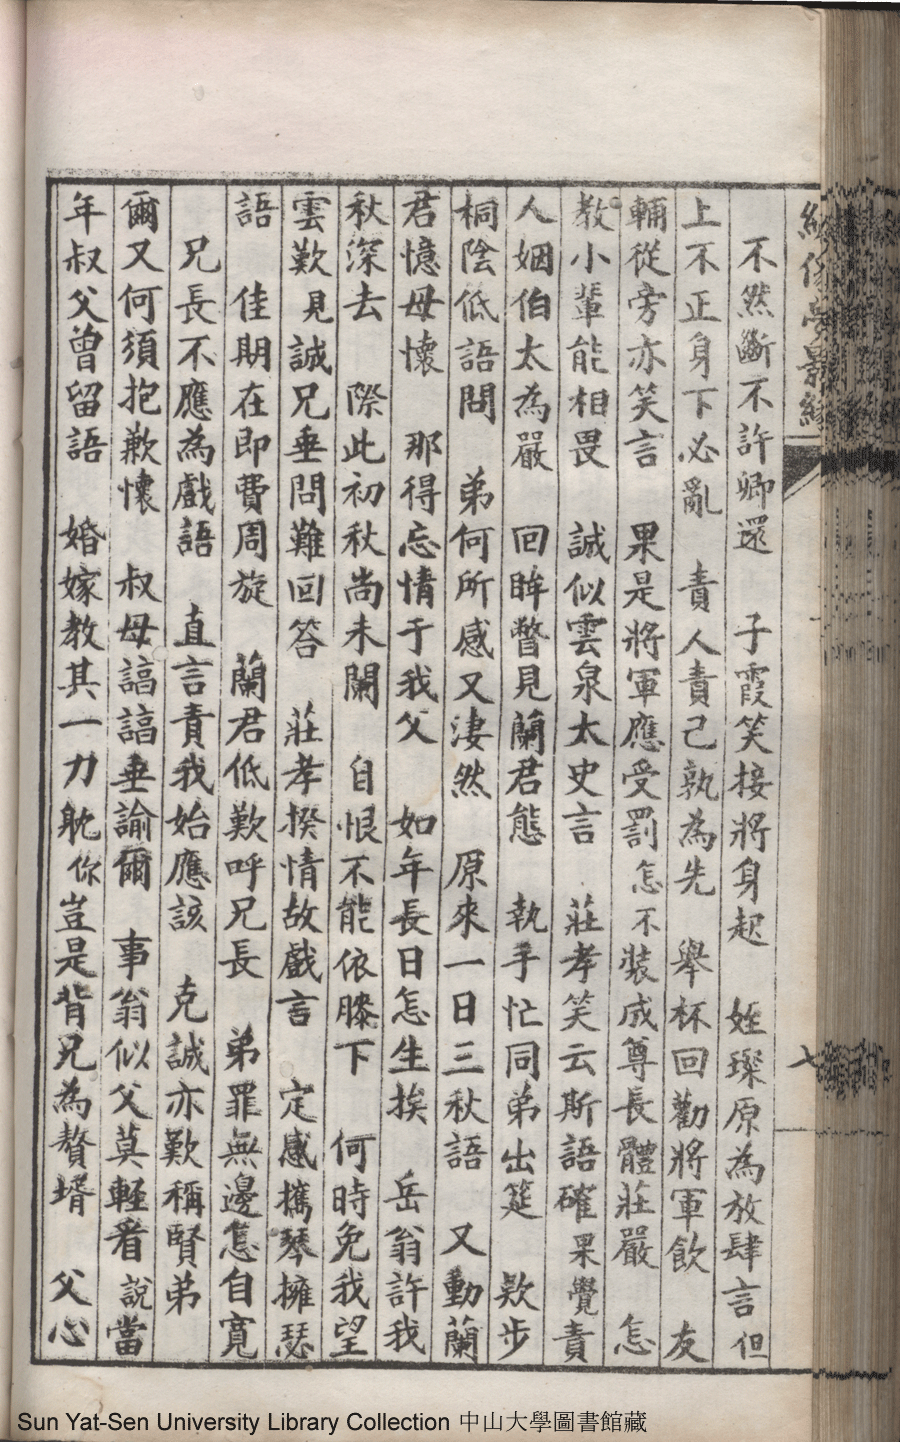 不然斷不許卿還　子霞笑接將身起　姪璨原為放肆言但
上不正身下必亂　責人責己孰為先　舉杯回勸將軍飲　友
輔從旁亦笑言　果是將軍應受罰怎不裝成尊長體莊嚴　怎
教小輩能相畏　誠似雲泉太史言　莊孝笑云斯語確果覺責
人姻伯太為嚴　回眸瞥見蘭君態　執手忙同弟出筵　欵步
桐陰低語問　弟何所感又淒然　原來一日三秋語　又動蘭
君憶母懷　那得忘情于我父　如年長日怎生挨　岳翁許我
秋深去　際此初秋尚未闌　自恨不能依膝下　何時免我望
雲歎見誠兄垂問難回答　莊孝揆情故戲言　定感攜琴擁瑟
語　佳期在即費周旋　蘭君低歎呼兄長　弟罪無邊怎自寬
兄長不應為戲語　直言責我始應該　克誠亦歎稱賢弟
爾又何須抱歉懷　叔母諄諄垂諭爾　事翁似父莫輕看說當
年叔父曾留語　婚嫁教其一力耽你豈是背兄為贅壻　父心
繪像夢影緣
七
Sun Yat-Sen University Library Collection 中山大學圖書館藏